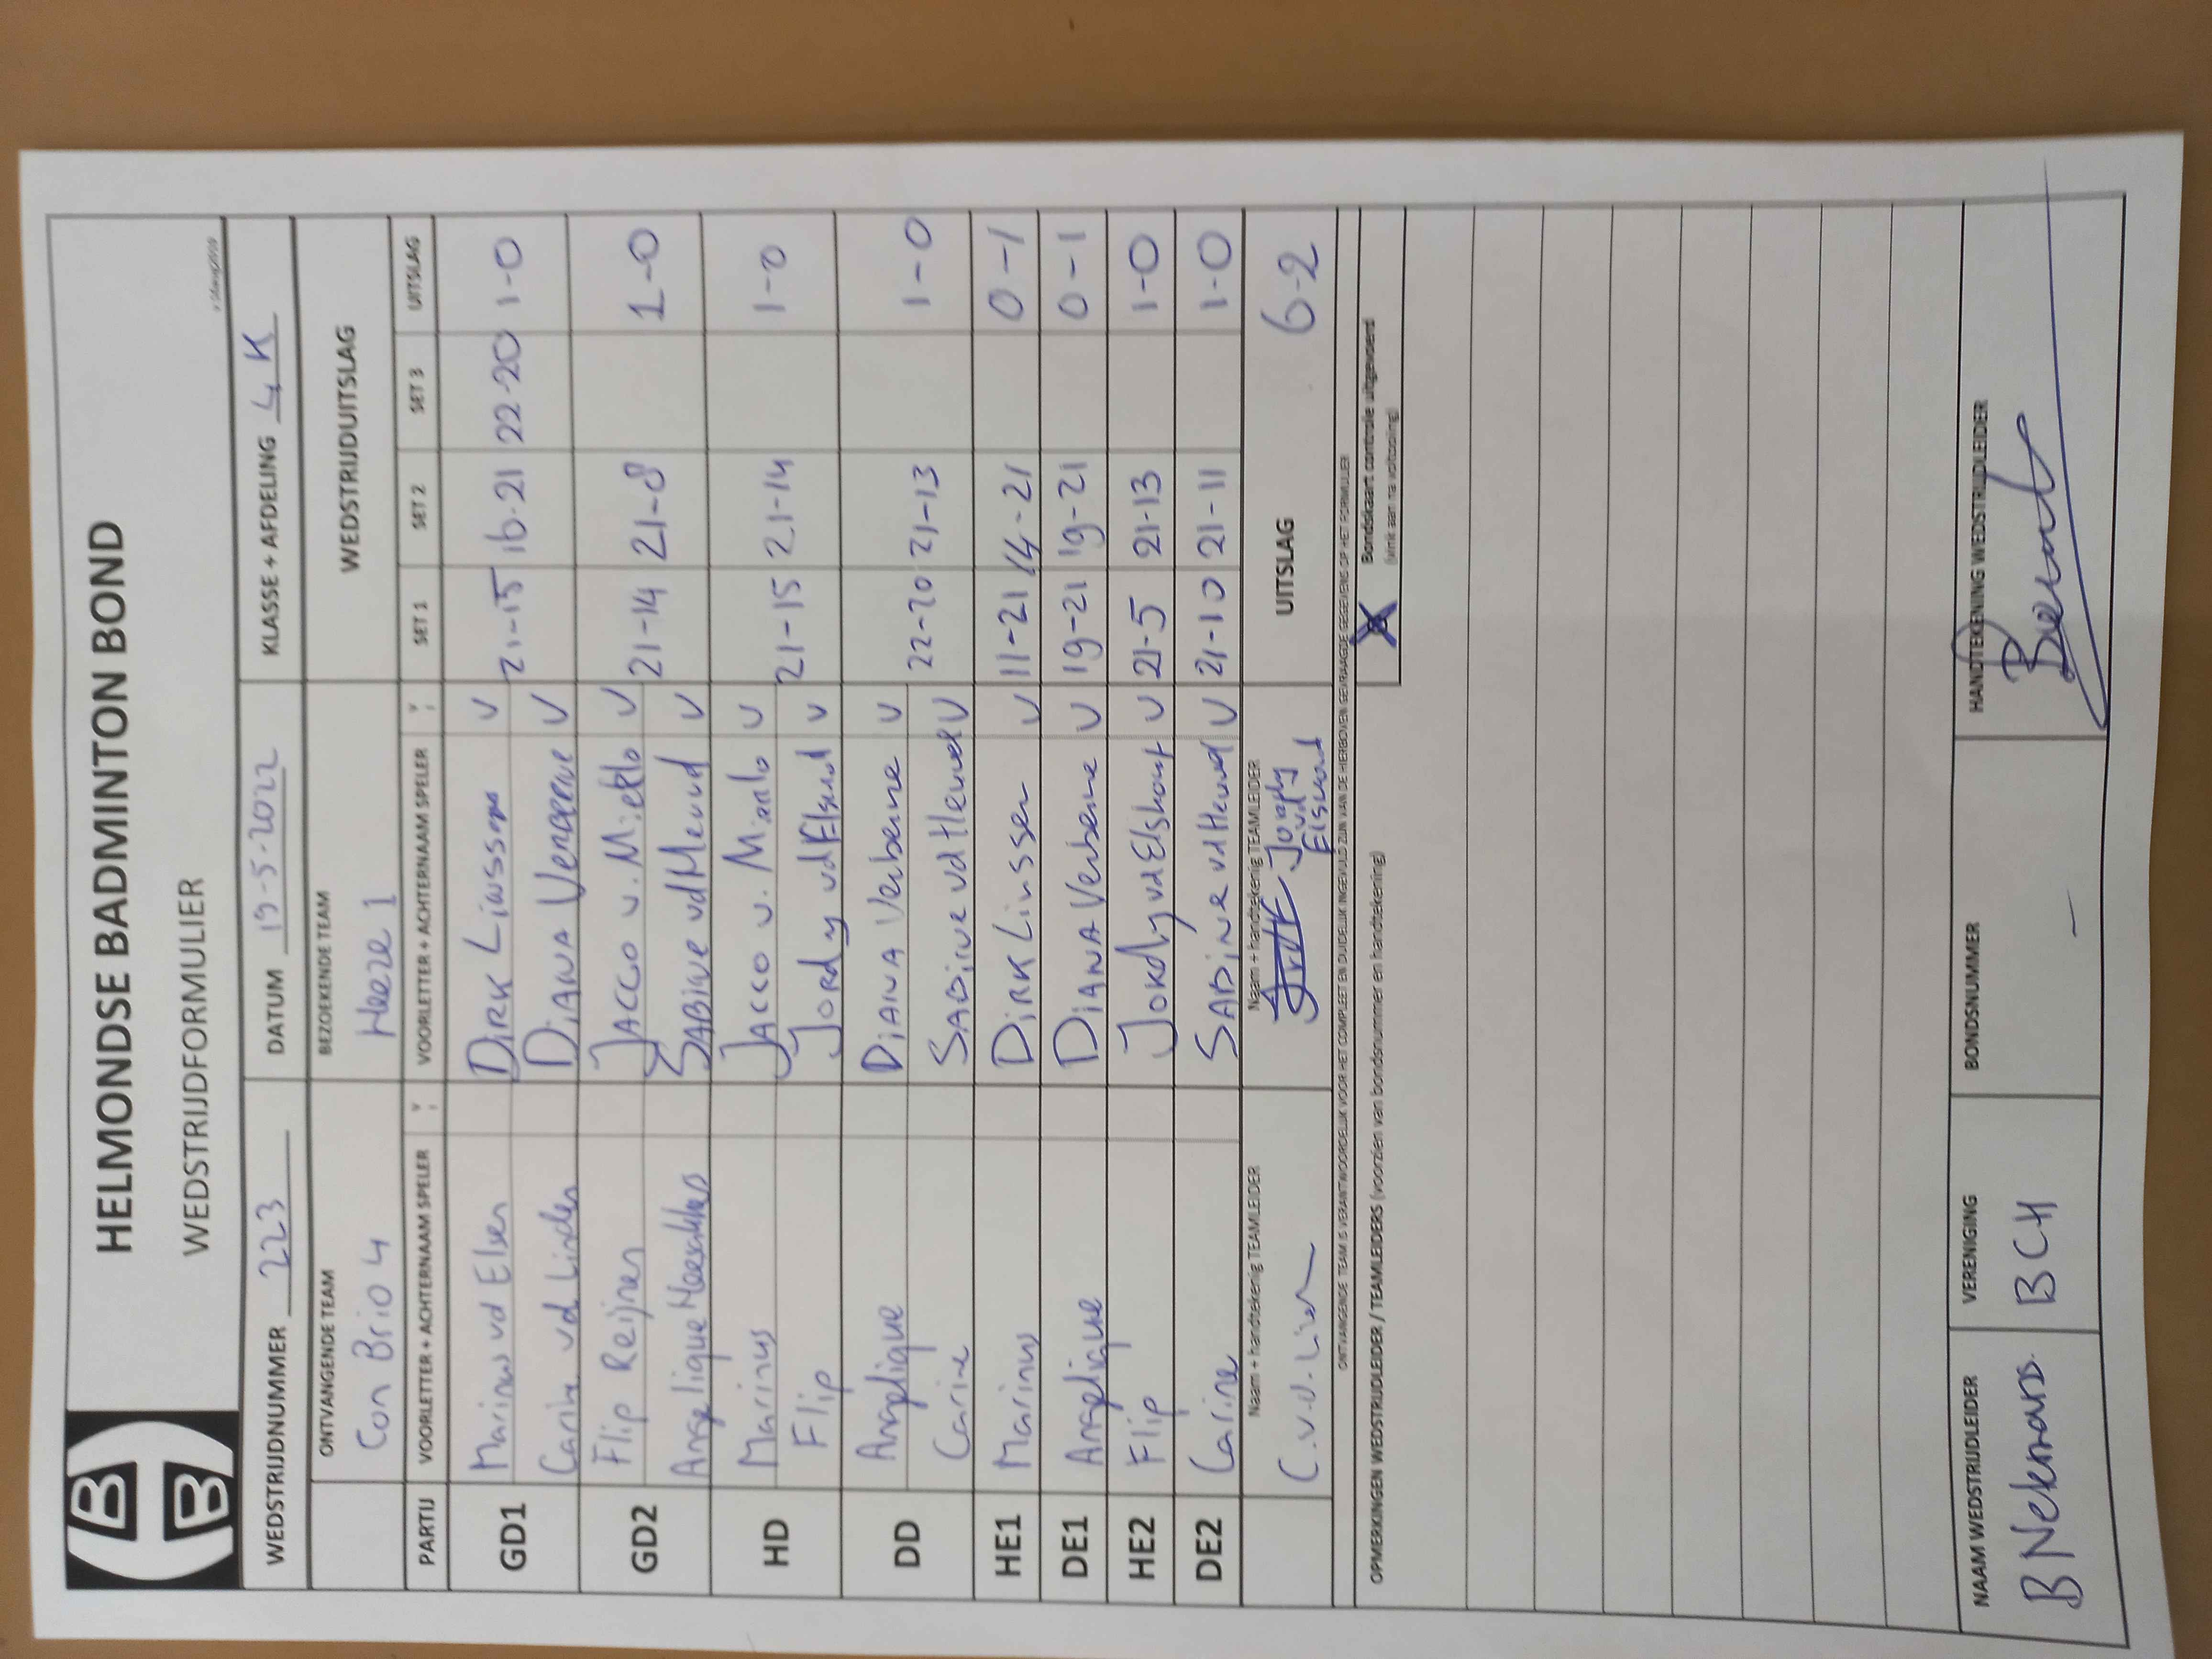 HELMONDSE BADMINTON BOND
WEDSTRIJDFORMULIER
WEDSTRIJDNUMMER 223 DATUM 19-5-2022 KLASSE + AFDELING 4K
ONTVANGENDE TEAM BEZOEKENDE TEAM WEDSTRIJDUITSLAG
Con Brio 4 Heeze 1
PARTIJ VOORLETTER + ACHTERNAAM SPELER VOORLETTER + ACHTERNAAM SPELER SET 1 SET 2 SET 3 UITSLAG
GD1 Marinus vd Elsen DIRK Linssen V 21-15 16-21 22-20 1-0
Carine vd Linden DIANA Verberne V
GD2 Flip Reijnen JACCO v. Mierlo V 21-14 21-8 1-0
Angelique SABINE vd Heuvel V
HD Marinus JACCO v. Mierlo V 21-15 21-14 1-0
Flip Jordy vd Elshout V
DD Angelique DIANA Verberne V 22-20 21-13 1-0
Carine SABINE vd Heuvel V
HE1 Marinus DIRK Linssen V 11-21 14-21 0-1
DE1 Angelique DIANA Verberne V 19-21 19-21 0-1
HE2 Flip JORDY vd Elshout V 21-5 21-13 1-0
DE2 Carine SABINE vd Heuvel V 21-10 21-11 1-0
Naam + handtekenig TEAMLEIDER Naam + handtekenig TEAMLEIDER UITSLAG 6-2
C.v.d. Jordy vd
ONTVANGENDE TEAM IS VERANTWOORDELIJK VOOR HET COMPLEET EN DUIDELIJK INGEVULD ZIJN VAN DE HIERBOVEN GEVRAAGDE GEGEVENS OP HET FORMULIER
OPMERKINGEN WEDSTRIJDLEIDER / TEAMLEIDERS (voorzien van bondsnummer en handtekening) X Bondskaart controle uitgevoerd
(vink aan na voltooiing)
NAAM WEDSTRIJDLEIDER VERENIGING BONDSNUMMER HANDTEKENING WEDSTRIJDLEIDER
B Nekmans BCH -